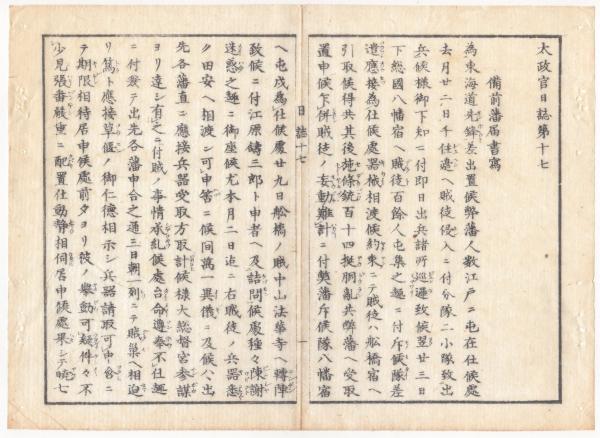 太政官日誌第十七
備前藩届書寫
為東海道先鋒差出置候弊藩人数江戸ニ屯在仕候處
去月廿二日千住邊ヘ賊徒侵入ニ付分隊二小隊致出
兵候様御下知ニ付即日出兵諸所巡邏致候翌廿三日
下総國八幡宿ヘ賊徒百餘人屯集之趣ニ付斥候隊差
遣應接為仕候處器械相渡候約束ニテ賊徒ハ舩橋宿ヘ
引取候得共其後施條銃百十四挺胴亂共弊藩ヘ受取
置申候乍併賊徒ノ妄動難計ニ付弊藩斥候隊八幡宿
日誌十七
ヘ屯戍為仕候處廿九日舩橋ノ賊中山法華寺ヘ轉陣
致候ニ付江原鑄三郎ト申者ヘ及詰問候處種々陳謝
迷惑之趣ニ御座候尤本月二日迄ニ右賊徒ノ兵器悉
ク田安ヘ相渡シ可申筈ニ候間萬一異儀ニ及候ハ出
先各藩直ニ應接兵器受取方取計候様大総督宮參謀
ヨリ達シ有之ニ付賊ノ事情承糺候處台命遵奉不仕趣
ニ付テ出先各藩申合之通三日朝一列ニテ賊巣ヘ相迫
リ篤ト應接草偃ノ御仁徳相示シ兵器請取可申含ニ
テ期限相待居申候處前夕ヨリ彼ノ擧動可疑件々不
少見張番嚴重ニ配置仕動静相伺居申候處果シテ曉七